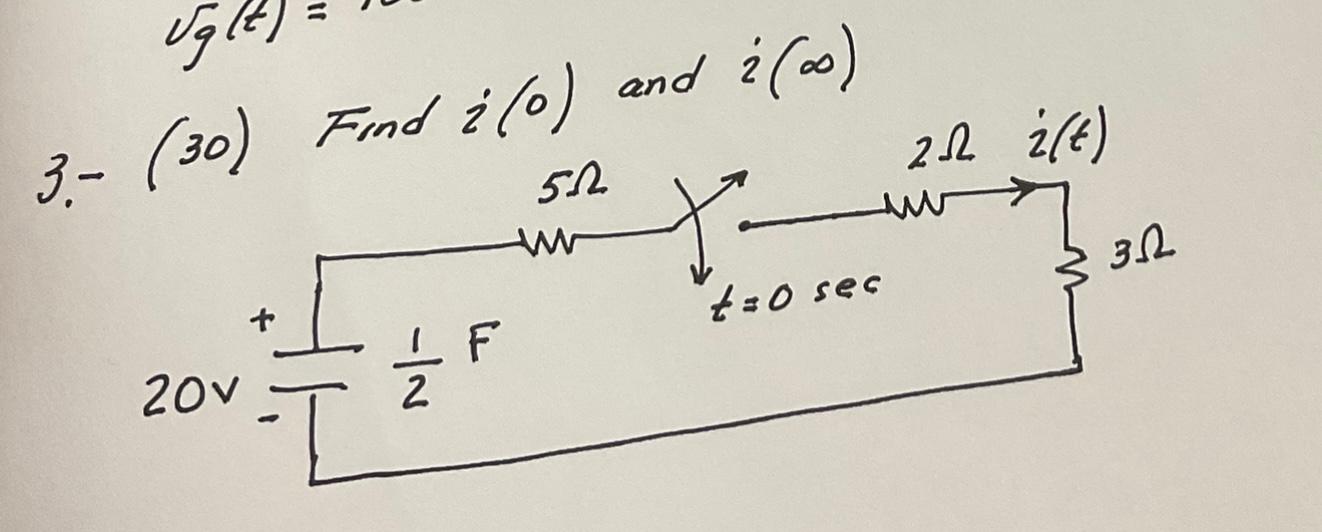 vg(t) =
3.- (30) Find i(0) and i(∞)
5Ω
2Ω i(t)
3Ω
t=0 sec
+
20V
-
1/2 F